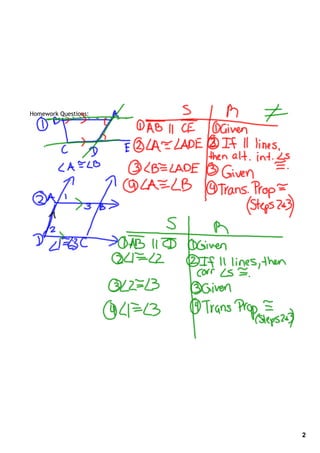 Homework Questions:
① B A
C D E
∠A≅∠B
S R ≠
① AB || CE ① Given
② ∠A≅∠ADE ② If || lines,
then alt. int. ∠s
≅.
③ ∠B≅∠ADE ③ Given
④ ∠A≅∠B ④ Trans. Prop ≅
(Steps 2&3)
② A 1 3 B
2
D ∠1≅∠3 C
S R
① AB || CD ① Given
② ∠1≅∠2 ② If || lines, then
corr ∠s ≅.
③ ∠2≅∠3 ③ Given
④ ∠1≅∠3 ④ Trans Prop ≅
(Steps 2&3)
2